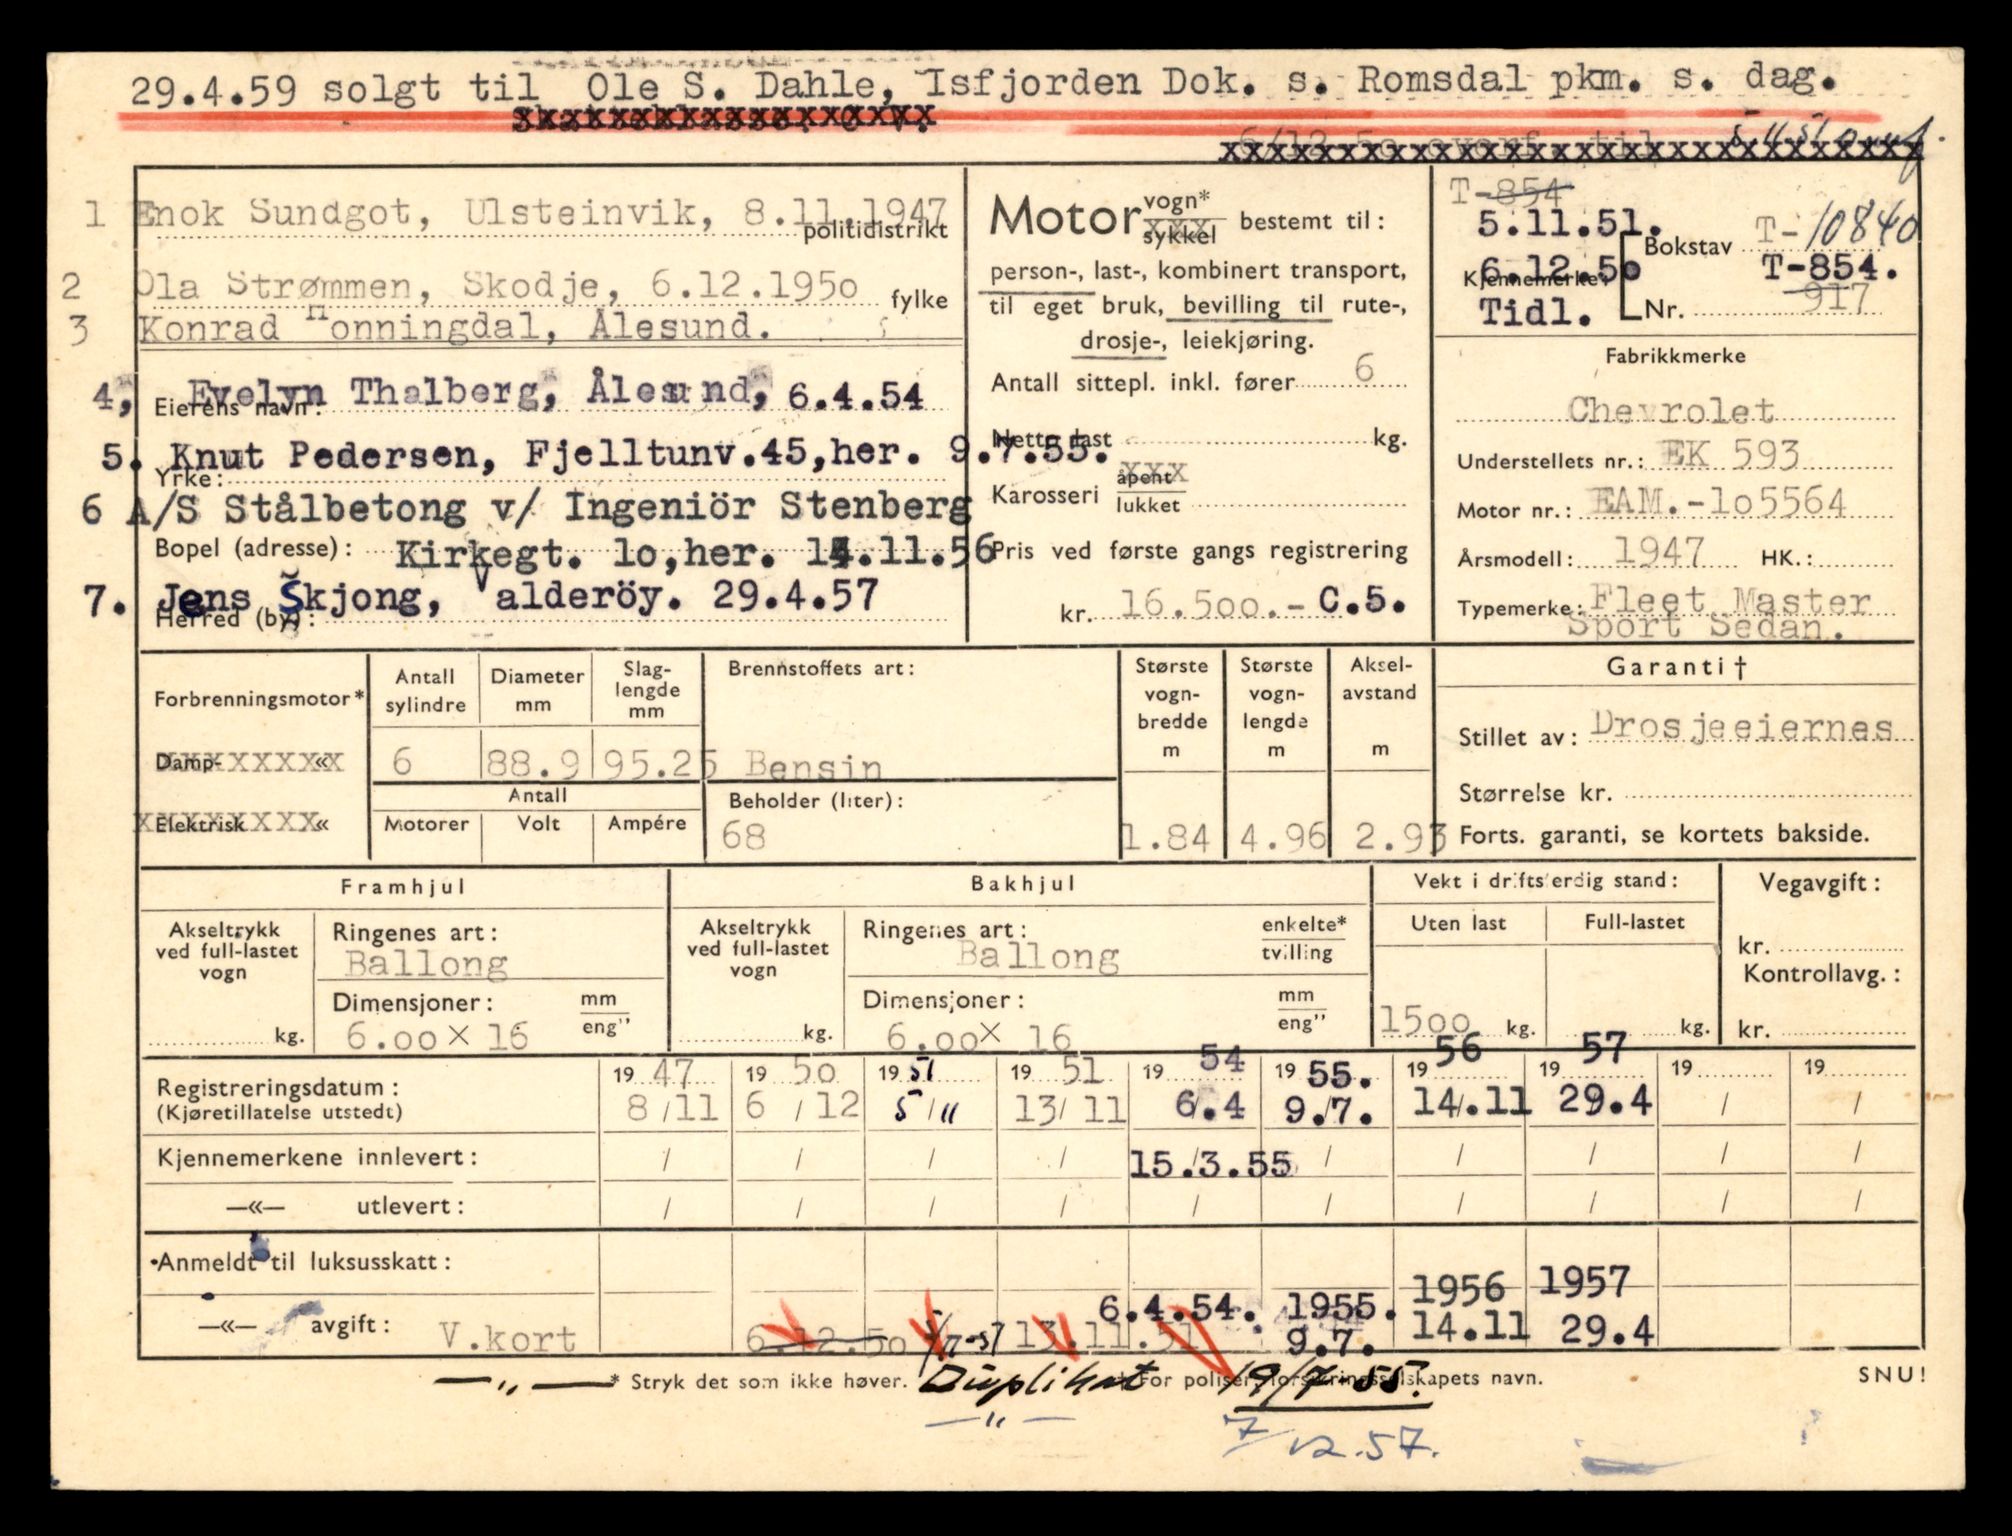 29.4.59 solgt til Ole S. Dahle, Isfjorden Dok. s. Romsdal pkm. s. dag.
5.11.51 ovf.
6/12 50 overf. til
1 Enok Sundgot, Ulsteinvik, 8.11.1947
politidistrikt
2 Ola Strømmen, Skodje, 6.12.195o
fylke
3 Konrad Honningdal, Ålesund.
4, Evelyn Thalberg, Ålesund, 6.4.54
Eierens navn:
5. Knut Pedersen, Fjelltunv.45,her. 9.7.55.
Yrke:
6 A/S Stålbetong v/ Ingeniör Stenberg
Bopel (adresse): Kirkegt. 1o,her. 14.11.56
7. Jens Skjong, Valderöy. 29.4.57
Herred (by):
Motor vogn* sykkel bestemt til:
person-, last-, kombinert transport,
til eget bruk, bevilling til rute-,
drosje-, leiekjøring.
Antall sittepl. inkl. fører 6
Netto last kg.
Karosseri åpent lukket
Pris ved første gangs registrering
kr. 16.5oo.- C.5.
T-854
5.11.51.
Bokstav T-10840
6.12.5o T-854.
Kjennemerke:
Tidl. Nr. 917
Fabrikkmerke
Chevrolet
Understellets nr.: EK 593
Motor nr.: EAM.-1o5564
Årsmodell: 1947 HK.:
Typemerke: Fleet Master
Sport Sedan.
Forbrenningsmotor*
Damp- «
Elektrisk «
Antall sylindre
6
Diameter mm
88.9
Slag-lengde mm
95.25
Antall
Motorer Volt Ampére
Brennstoffets art:
Bensin
Beholder (liter):
68
Største vogn-bredde m
1.84
Største vogn-lengde m
4.96
Aksel-avstand m
2.93
Garanti †
Stillet av: Drosjeeiernes
Størrelse kr.
Forts. garanti, se kortets bakside.
Framhjul
Akseltrykk ved full-lastet vogn
kg.
Ringenes art:
Ballong
Dimensjoner: mm eng"
6.oo x 16
Bakhjul
Akseltrykk ved full-lastet vogn
kg.
Ringenes art: enkelte* tvilling
Ballong
Dimensjoner: mm eng"
6.oo x 16
Vekt i driftsferdig stand:
Uten last Full-lastet
15oo kg. kg.
Vegavgift:
kr.
Kontrollavg.:
kr.
Registreringsdatum: 19 47 19 5o 19 51 19 51 19 54 19 55. 19 56 19 57 19 19
(Kjøretillatelse utstedt) 8/11 6/12 5/11 13/11 6/4 9./7. 14/.11 29.4 / /
Kjennemerkene innlevert: / / / / 15.3.55 / / / / /
—«— utlevert: / / / / / / / / / /
Anmeldt til luksusskatt: 1956 1957
—«— avgift: V.kort 6.12.5o 5/11-51 13.11.51 6.4.54. 1955. 9.7. 14.11 29.4
—"— * Stryk det som ikke høver. Duplikat † For poliser, forsikringsselskapets navn. 19/7 55. SNU!
—"— 7/12.57.